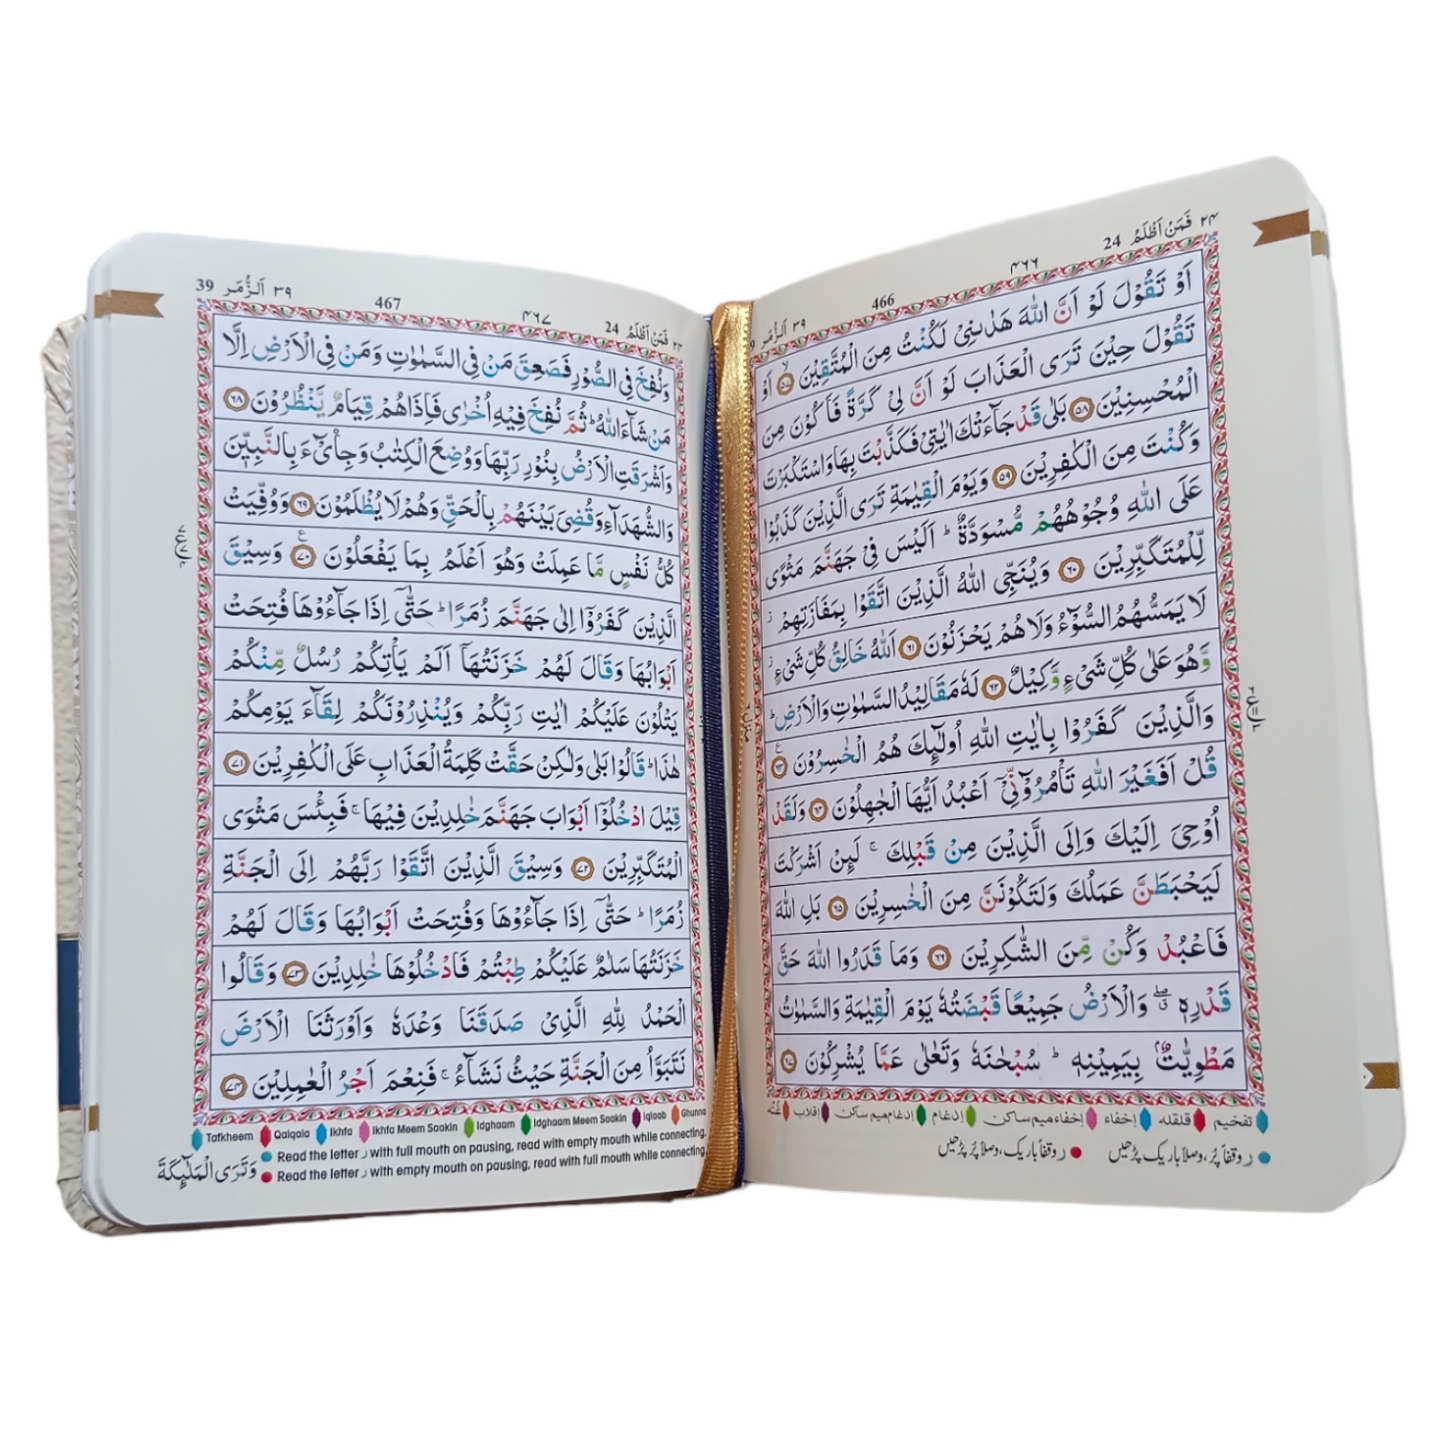 ٢٤ فَمَنْ اَظْلَمُ 24
٤٦٦
466
٣٩ اَلزُّمَر
اَوْ تَقُوْلَ لَوْ اَنَّ اللّٰهَ هَدٰىنِيْ لَكُنْتُ مِنَ الْمُتَّقِيْنَ ۙ‏﴿٥٧﴾ اَوْ
تَقُوْلَ حِيْنَ تَرَى الْعَذَابَ لَوْ اَنَّ لِيْ كَرَّةً فَاَكُوْنَ مِنَ
الْمُحْسِنِيْنَ ﴿٥٨﴾ بَلٰى قَدْ جَآءَتْكَ اٰيٰتِيْ فَكَذَّبْتَ بِهَا وَاسْتَكْبَرْتَ
وَكُنْتَ مِنَ الْكٰفِرِيْنَ ﴿٥٩﴾ وَيَوْمَ الْقِيٰمَةِ تَرَى الَّذِيْنَ كَذَبُوْا
عَلَى اللّٰهِ وُجُوْهُهُمْ مُّسْوَدَّةٌ ؕ اَلَيْسَ فِيْ جَهَنَّمَ مَثْوًى
لِّلْمُتَكَبِّرِيْنَ ﴿٦٠﴾ وَيُنَجِّي اللّٰهُ الَّذِيْنَ اتَّقَوْا بِمَفَازَتِهِمْ ز
لَا يَمَسُّهُمُ السُّوْٓءُ وَلَا هُمْ يَحْزَنُوْنَ ﴿٦١﴾ اَللّٰهُ خَالِقُ كُلِّ شَيْءٍ ز
وَّهُوَ عَلٰى كُلِّ شَيْءٍ وَّكِيْلٌ ﴿٦٢﴾ لَهٗ مَقَالِيْدُ السَّمٰوٰتِ وَالْاَرْضِ ؕ
وَالَّذِيْنَ كَفَرُوْا بِاٰيٰتِ اللّٰهِ اُولٰٓئِكَ هُمُ الْخٰسِرُوْنَ ﴿٦٣﴾ ع
قُلْ اَفَغَيْرَ اللّٰهِ تَاْمُرُوْٓنِّيْٓ اَعْبُدُ اَيُّهَا الْجٰهِلُوْنَ ﴿٦٤﴾ وَلَقَدْ
اُوْحِيَ اِلَيْكَ وَاِلَى الَّذِيْنَ مِنْ قَبْلِكَ ۚ لَئِنْ اَشْرَكْتَ
لَيَحْبَطَنَّ عَمَلُكَ وَلَتَكُوْنَنَّ مِنَ الْخٰسِرِيْنَ ﴿٦٥﴾ بَلِ اللّٰهَ
فَاعْبُدْ وَكُنْ مِّنَ الشّٰكِرِيْنَ ﴿٦٦﴾ وَمَا قَدَرُوا اللّٰهَ حَقَّ
قَدْرِهٖ ۖ وَالْاَرْضُ جَمِيْعًا قَبْضَتُهٗ يَوْمَ الْقِيٰمَةِ وَالسَّمٰوٰتُ
مَطْوِيّٰتٌۢ بِيَمِيْنِهٖ ؕ سُبْحٰنَهٗ وَتَعٰلٰى عَمَّا يُشْرِكُوْنَ ﴿٦٧﴾
تفخیم قلقله إخفاء إخفاء میم ساکن إدغام إدغام میم ساکن اقلاب غُنّه
ر وقفاً پُر، وصلاً باریک پڑھیں ر وقفاً باریک، وصلاً پُر پڑھیں
39 ٣٩ اَلزُّمَر
467
٤٦٧
24 فَمَنْ اَظْلَمُ ٢٤
وَنُفِخَ فِي الصُّوْرِ فَصَعِقَ مَنْ فِي السَّمٰوٰتِ وَمَنْ فِي الْاَرْضِ اِلَّا
مَنْ شَآءَ اللّٰهُ ؕ ثُمَّ نُفِخَ فِيْهِ اُخْرٰى فَاِذَا هُمْ قِيَامٌ يَّنْظُرُوْنَ ﴿٦٨﴾
وَاَشْرَقَتِ الْاَرْضُ بِنُوْرِ رَبِّهَا وَوُضِعَ الْكِتٰبُ وَجِايْٓءَ بِالنَّبِيّٖنَ
وَالشُّهَدَآءِ وَقُضِيَ بَيْنَهُمْ بِالْحَقِّ وَهُمْ لَا يُظْلَمُوْنَ ﴿٦٩﴾ وَوُفِّيَتْ
كُلُّ نَفْسٍ مَّا عَمِلَتْ وَهُوَ اَعْلَمُ بِمَا يَفْعَلُوْنَ ﴿٧٠﴾ ع وَسِيْقَ
الَّذِيْنَ كَفَرُوْٓا اِلٰى جَهَنَّمَ زُمَرًا ؕ حَتّٰٓى اِذَا جَآءُوْهَا فُتِحَتْ
اَبْوَابُهَا وَقَالَ لَهُمْ خَزَنَتُهَآ اَلَمْ يَاْتِكُمْ رُسُلٌ مِّنْكُمْ
يَتْلُوْنَ عَلَيْكُمْ اٰيٰتِ رَبِّكُمْ وَيُنْذِرُوْنَكُمْ لِقَآءَ يَوْمِكُمْ
هٰذَا ؕ قَالُوْا بَلٰى وَلٰكِنْ حَقَّتْ كَلِمَةُ الْعَذَابِ عَلَى الْكٰفِرِيْنَ ﴿٧١﴾
قِيْلَ ادْخُلُوْٓا اَبْوَابَ جَهَنَّمَ خٰلِدِيْنَ فِيْهَا ۚ فَبِئْسَ مَثْوَى
الْمُتَكَبِّرِيْنَ ﴿٧٢﴾ وَسِيْقَ الَّذِيْنَ اتَّقَوْا رَبَّهُمْ اِلَى الْجَنَّةِ
زُمَرًا ؕ حَتّٰٓى اِذَا جَآءُوْهَا وَفُتِحَتْ اَبْوَابُهَا وَقَالَ لَهُمْ
خَزَنَتُهَا سَلٰمٌ عَلَيْكُمْ طِبْتُمْ فَادْخُلُوْهَا خٰلِدِيْنَ ﴿٧٣﴾ وَقَالُوا
الْحَمْدُ لِلّٰهِ الَّذِيْ صَدَقَنَا وَعْدَهٗ وَاَوْرَثَنَا الْاَرْضَ
نَتَبَوَّاُ مِنَ الْجَنَّةِ حَيْثُ نَشَآءُ ۚ فَنِعْمَ اَجْرُ الْعٰمِلِيْنَ ﴿٧٤﴾
Tafkheem Qalqala Ikhfa Ikhfa Meem Saakin Idghaam Idghaam Meem Saakin Iqlaab Ghunna
Read the letter ر with full mouth on pausing, read with empty mouth while connecting.
Read the letter ر with empty mouth on pausing, read with full mouth while connecting.
وَتَرَى الْمَلٰٓئِكَةَ